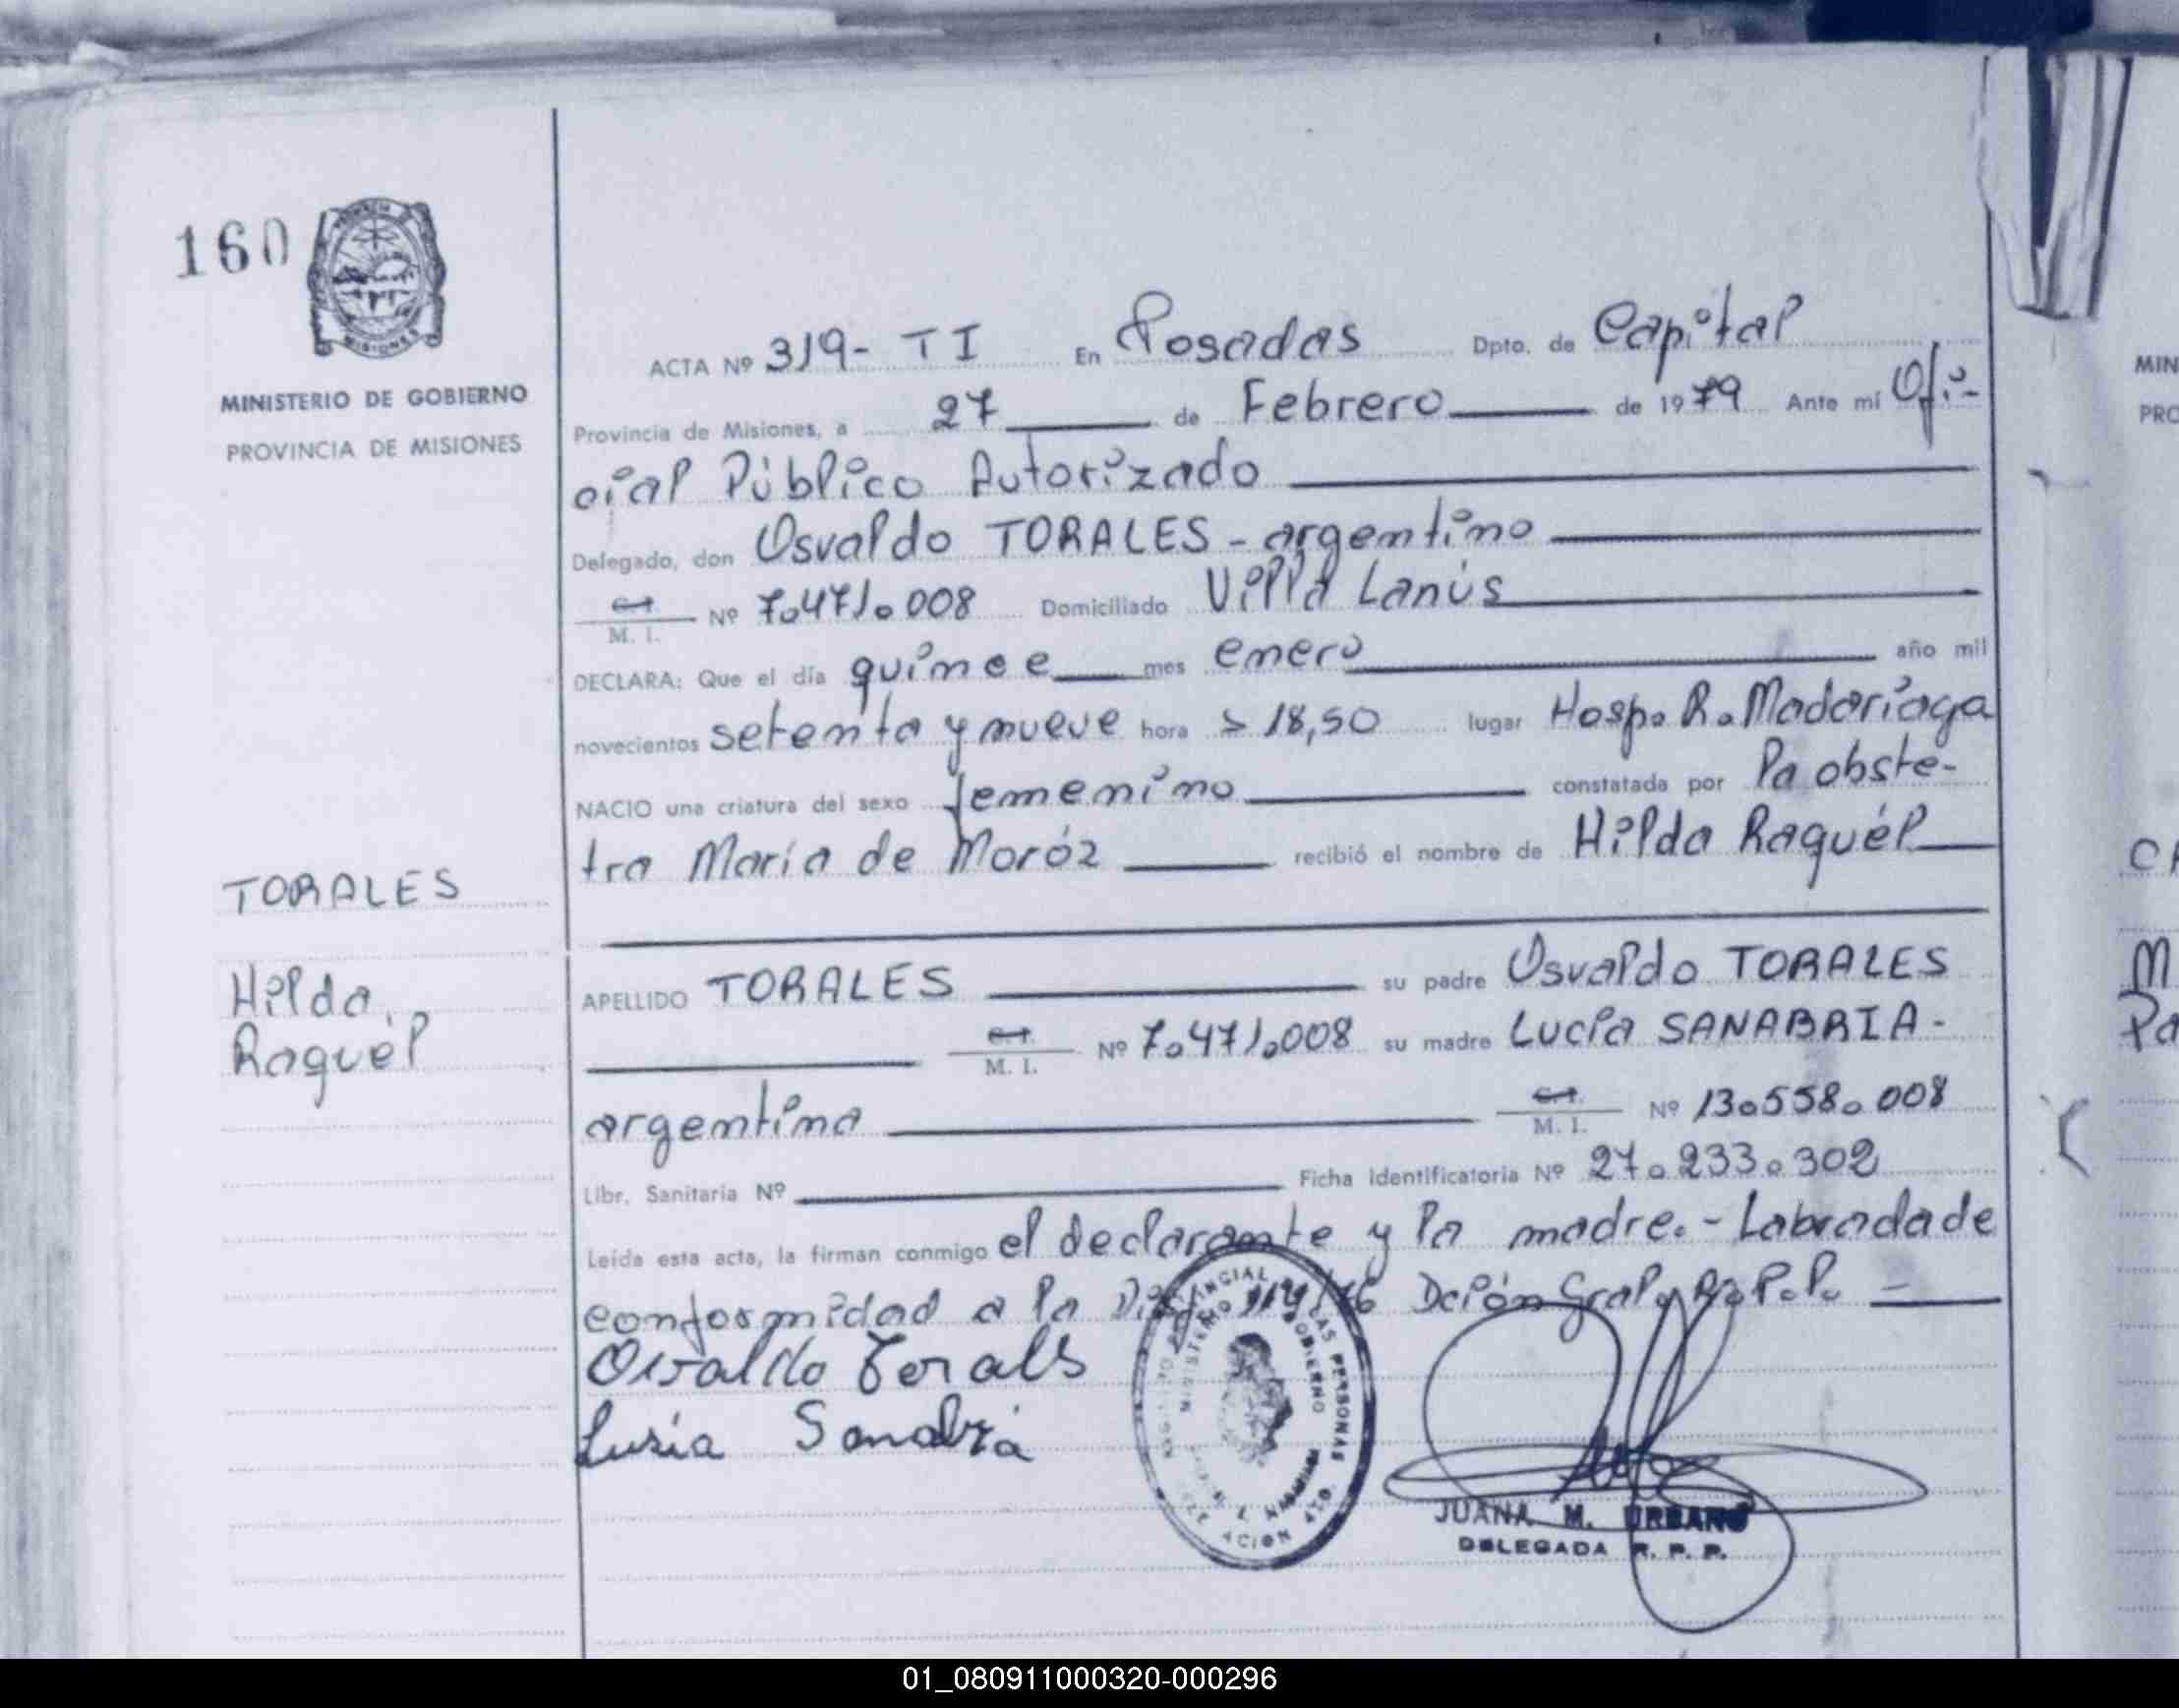 160
MINISTERIO DE GOBIERNO
PROVINCIA DE MISIONES
ACTA Nº 319- TI En Posadas Dpto. de Capital
Provincia de Misiones, a 27 de Febrero de 1979 Ante mí Ofi-
cial Público Autorizado
Delegado, don Osvaldo TORALES - argentino
C.I. M. I. Nº 7.471.008 Domiciliado Villa Lanús
DECLARA: Que el día quince mes enero año mil
novecientos setenta y nueve hora s 18,50 lugar Hosp. R. Madariaga
NACIO una criatura del sexo femenino constatada por la obste-
tra María de Moróz recibió el nombre de Hilda Raquél
TORALES
Hilda
Raquél
APELLIDO TORALES su padre Osvaldo TORALES
C.I. M. I. Nº 7.471.008 su madre Lucía SANABRIA -
argentina C.I. M. I. Nº 13.558.008
Libr. Sanitaria Nº Ficha Identificatoria Nº 27.233.302
Leída esta acta, la firman conmigo el declarante y la madre.- Labrada de
conformidad a la Disp. 114/76 Dción Gral. R.P.P. -
Osvaldo Torals
Lusia Sanabria
MINISTERIO GOBIERNO
LAS PERSONAS
JUANA M. URBANO
DELEGADA R. P. P.
MIN
PRO
M
01_080911000320-000296